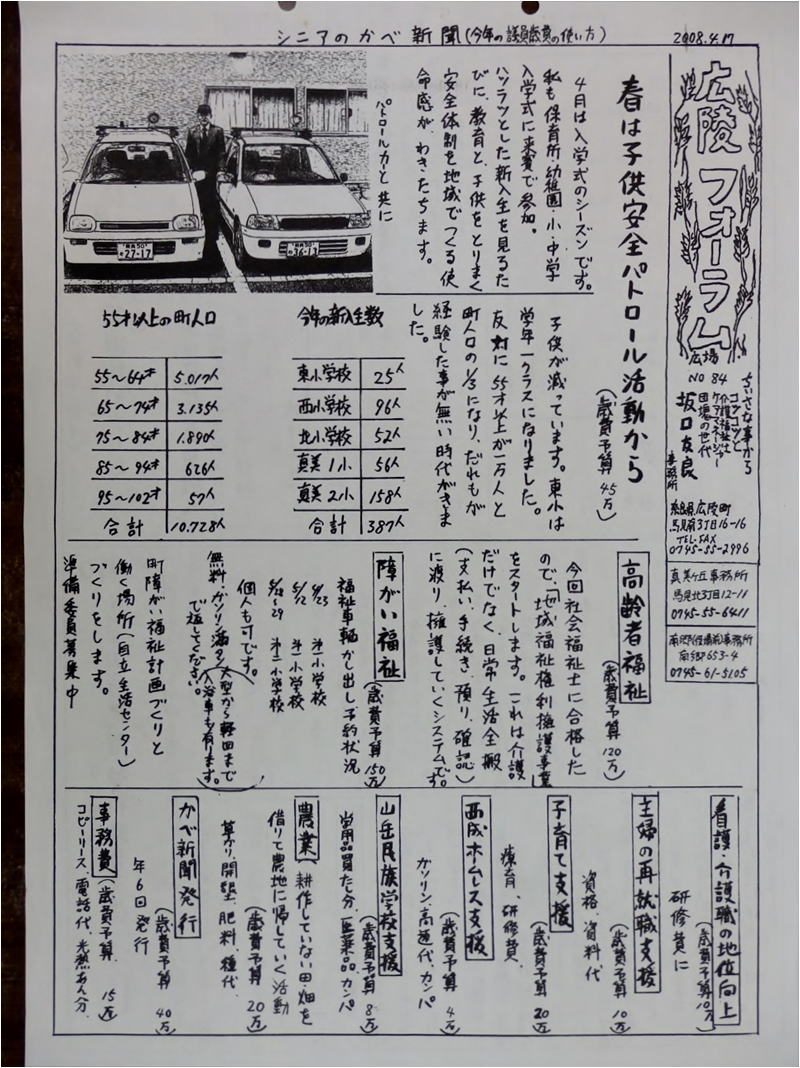 シニアのかべ新聞(今年の議員歳費の使い方)
2008.4.17
広陵フォーラム
広場
NO 84
ちいさな事から
コツコツと
介護福祉は
ケアマネージャー
団塊の世代
坂口友良
事務所
奈良県広陵町
馬見南3丁目16-16
TEL・FAX
0745-55-2996
真美ヶ丘事務所
馬見北3丁目12-11
0745-55-6411
南郷役場前事務所
南郷653-4
0745-61-5105
春は子供安全パトロール活動から
(歳費予算 45万)
4月は入学式のシーズンです。
私も保育所・幼稚園・小・中学
入学式に来賓で参加。
ハツラツとした新入生を見るた
びに、教育と、子供をとりまく
安全体制を地域でつくる使
命感が、わきたちます。
パトロールカーと共に
27-17
36-13
子供が減っています。東小は
学年一クラスになりました。
反対に55才以上が一万人と
町人口の1/3になり、だれもが
経験した事が無い時代がきま
した。
今年の新入生数
東小学校 25人
西小学校 96人
北小学校 52人
真美1小 56人
真美2小 158人
合計 387人
55才以上の町人口
55〜64才 5.017人
65〜74才 3.135人
75〜84才 1.890人
85〜94才 626人
95〜102才 57人
合計 10.728人
高齢者福祉
(歳費予算 120万)
今回社会福祉士に合格した
ので、「地域福祉権利擁護事業」
をスタートします。これは介護
だけでなく、日常生活全搬
(支払い、手続き、預り、確認)
に渡り、擁護していくシステムです。
障がい福祉
(歳費予算 150万)
福祉車輌かし出し予約状況
4/23 第一小学校
5/2 第一小学校
5/12〜29 第二小学校
個人も可です。
無料・ガソリン満タン
で返してください。
(大型から軽四まで
入浴車も有ります。)
町障がい福祉計画づくりと
働く場所(自立生活センター)
づくりをします。
準備委員募集中
看護・介護職の地位向上
(歳費予算10万)
研修費に
主婦の再就職支援
(歳費予算 10万)
資格・資料代
子育て支援
(歳費予算 20万)
療育、研修費、
西成ホームレス支援
(歳費予算 4万)
ガソリン、高速代、カンパ
山岳民族学校支援
(歳費予算 8万)
当用品買たし分、医薬品、カンパ
農業
耕作していない田・畑を
借りて農地に帰していく活動
(歳費予算 20万)
草かり、開墾、肥料、種代、
かべ新聞発行
(歳費予算 40万)
年6回発行
事務費
(歳費予算 15万)
コピーリース、電話代、光熱あん分、